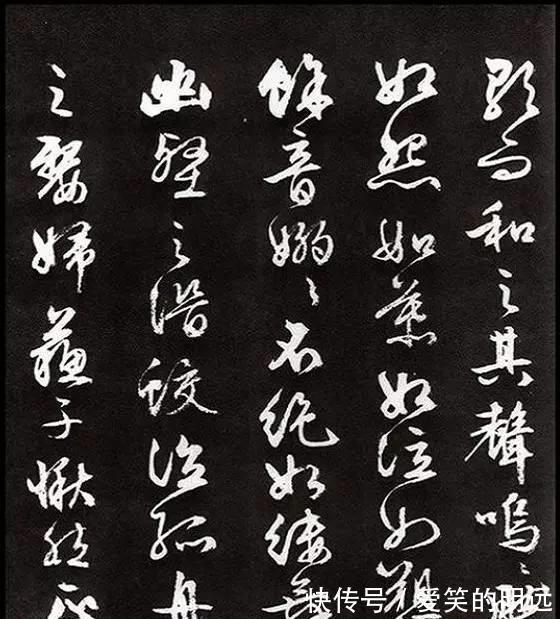 歌而和之其聲嗚々
如怨如慕如泣如訴
餘音嫋々不絕如縷舞
幽壑之潛蛟泣孤舟
之嫠婦蘇子愀然正
快传号/爱笑的明远